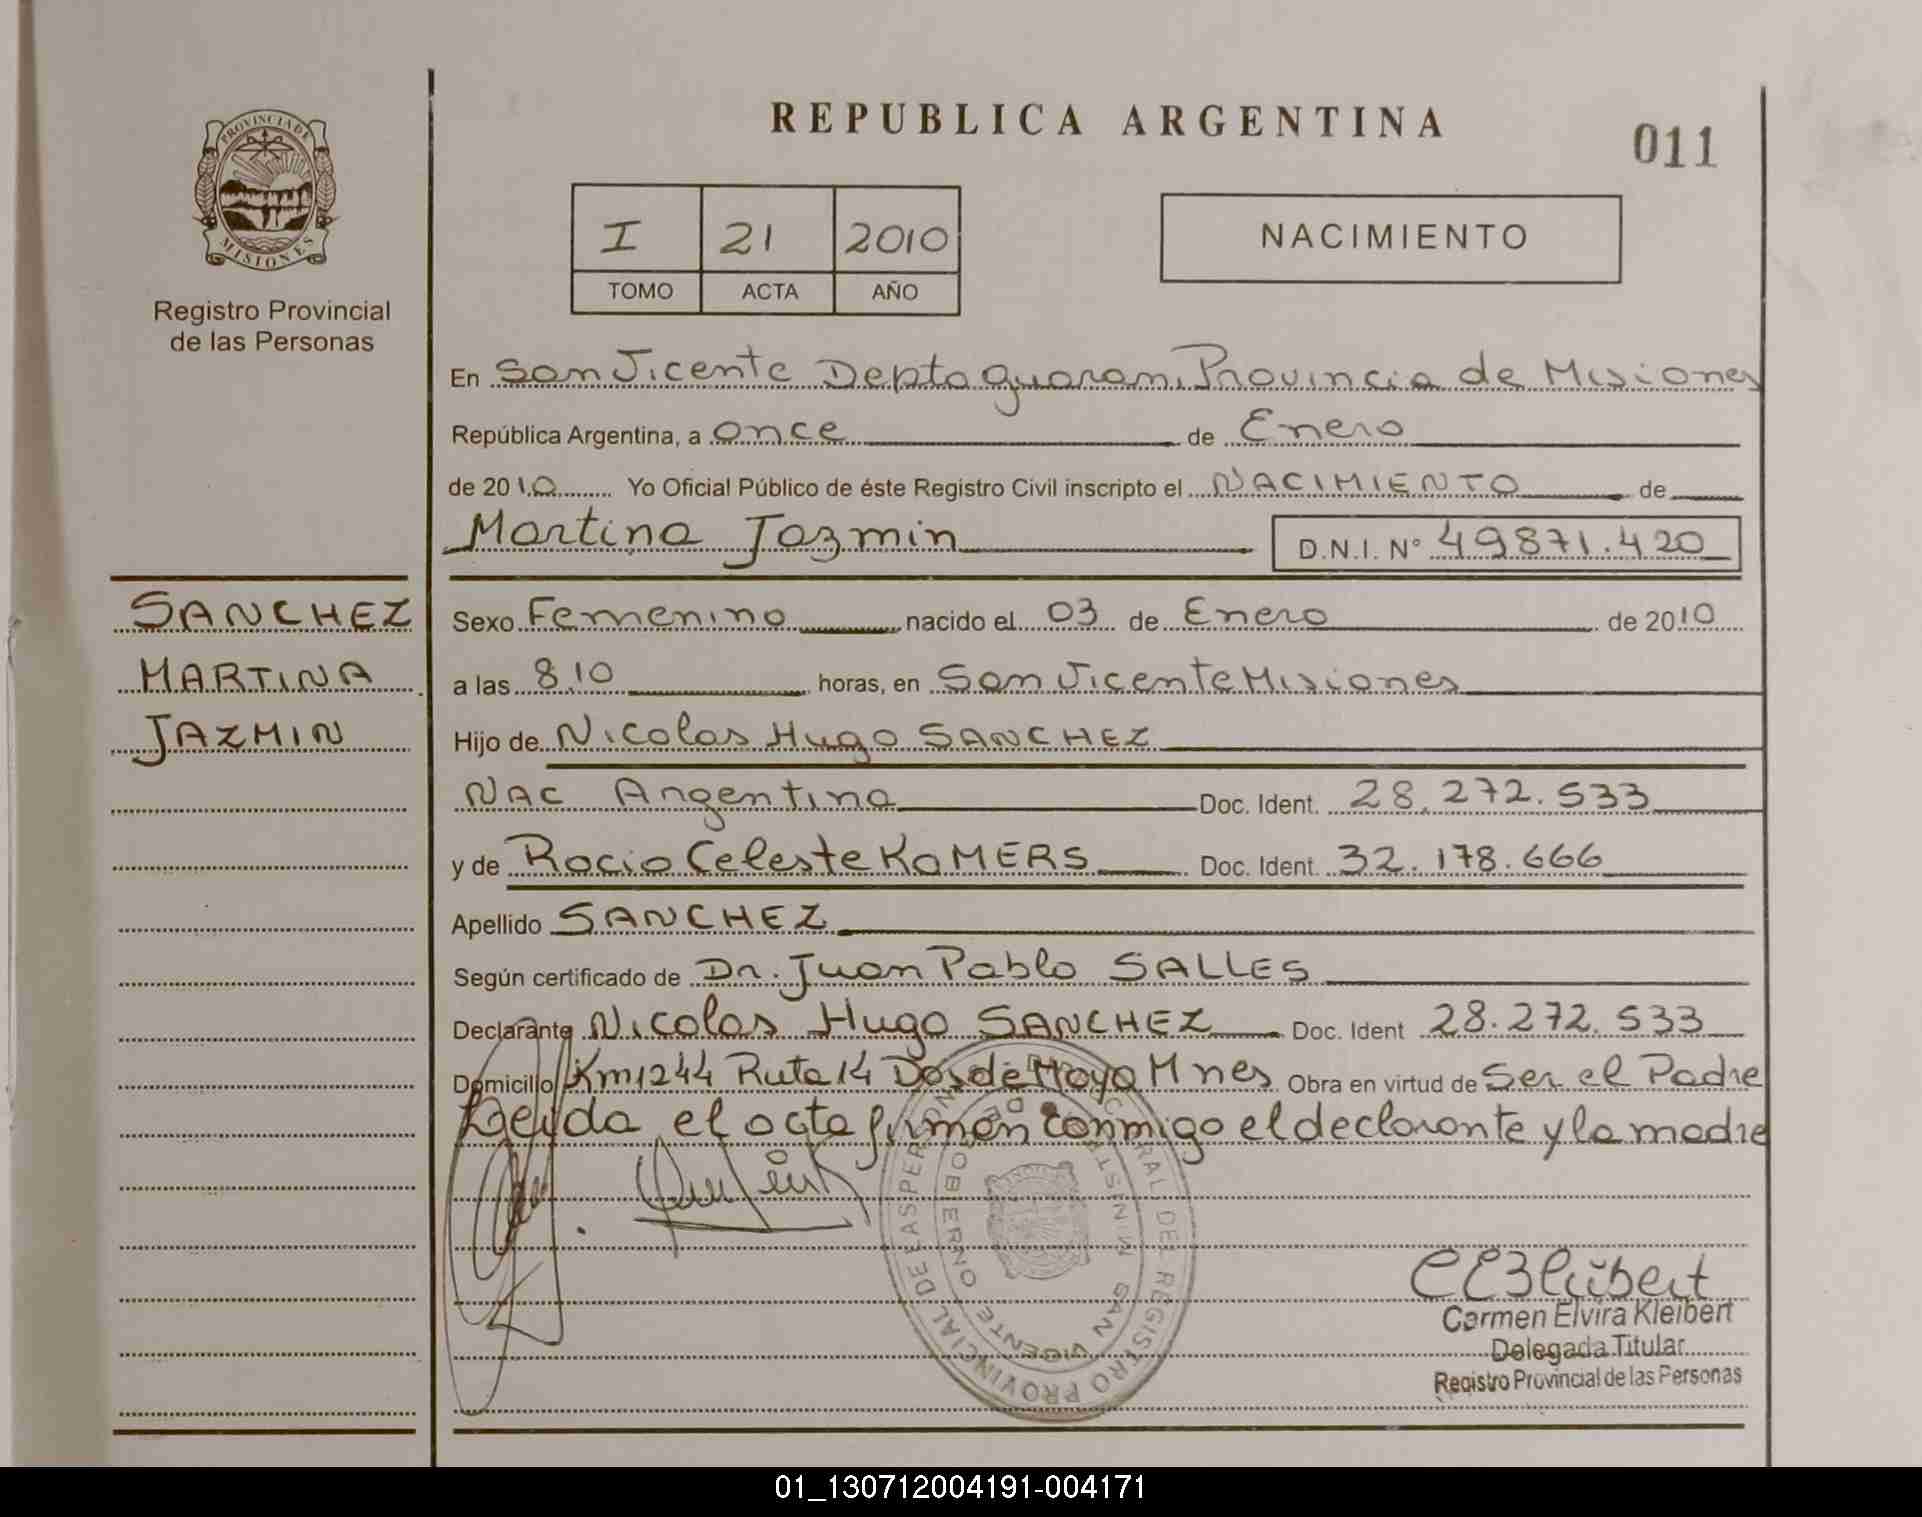 REPUBLICA ARGENTINA
011
PROVINCIA DE
MISIONES
Registro Provincial
de las Personas
I 21 2010
TOMO ACTA AÑO
NACIMIENTO
En San Vicente Depto guarani Provincia de Misiones
República Argentina, a once de Enero
de 2010 Yo Oficial Público de éste Registro Civil inscripto el NACIMIENTO de
Martina Jazmin D.N.I. N° 49871.420
SANCHEZ
MARTINA
JAZMIN
Sexo Femenino nacido el 03 de Enero de 2010
a las 8,10 horas, en San Vicente Misiones
Hijo de Nicolas Hugo SANCHEZ
NAC Argentina Doc. Ident. 28.272.533
y de Rocio Celeste KOMERS Doc. Ident. 32.178.666
Apellido SANCHEZ
Según certificado de Dr. Juan Pablo SALLES
Declarante Nicolas Hugo SANCHEZ Doc. Ident 28.272.533
Domicilio Km1244 Ruta 14 Dos de Mayo Mnes Obra en virtud de Ser el Padre
Leida el acta firman conmigo el declarante y la madre
REGISTRO PROVINCIAL DE LAS PERSONAS
GOBIERNO
SAN VICENTE
CEKleibert
Carmen Elvira Kleibert
Delegada Titular
Registro Provincial de las Personas
01_130712004191-004171